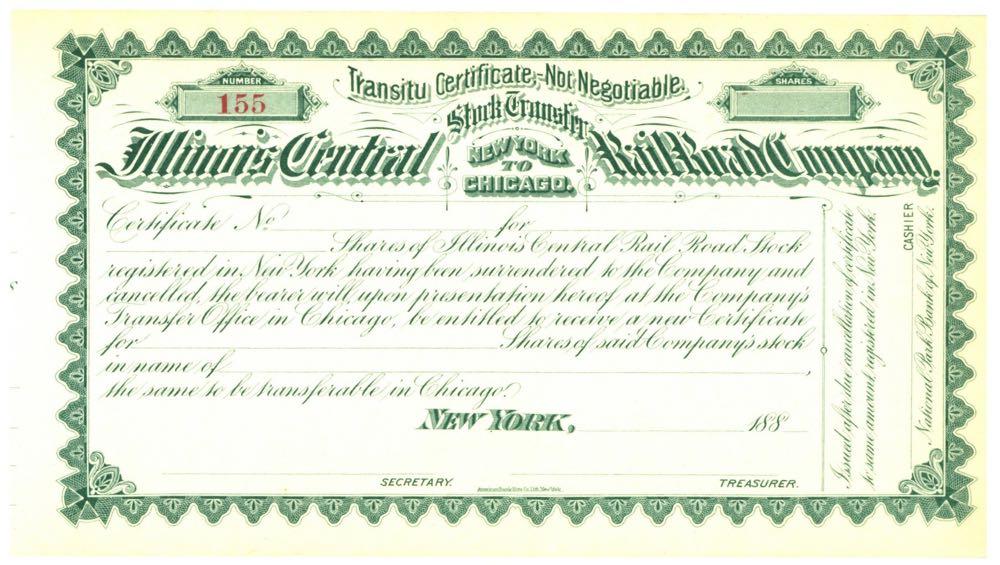 Transitu Certificate,-Not Negotiable.
NUMBER
155
SHARES
Stock Transfer
Illinois Central
NEW YORK
TO
CHICAGO.
Rail Road Company.
Certificate No for
Shares of Illinois Central Rail Road Stock
registered in New York having been surrendered to the Company and
cancelled, the bearer will, upon presentation hereof at the Company's
Transfer Office in Chicago, be entitled to receive a new Certificate
for Shares of said Company's stock
in name of ,
the same to be transferable in Chicago.
NEW YORK, 188
SECRETARY.
American Bank Note Co. Lith. New York.
TREASURER.
Issued after due cancellation of certificate
to same amount, registered in New York.
CASHIER
National Park Bank of New York.